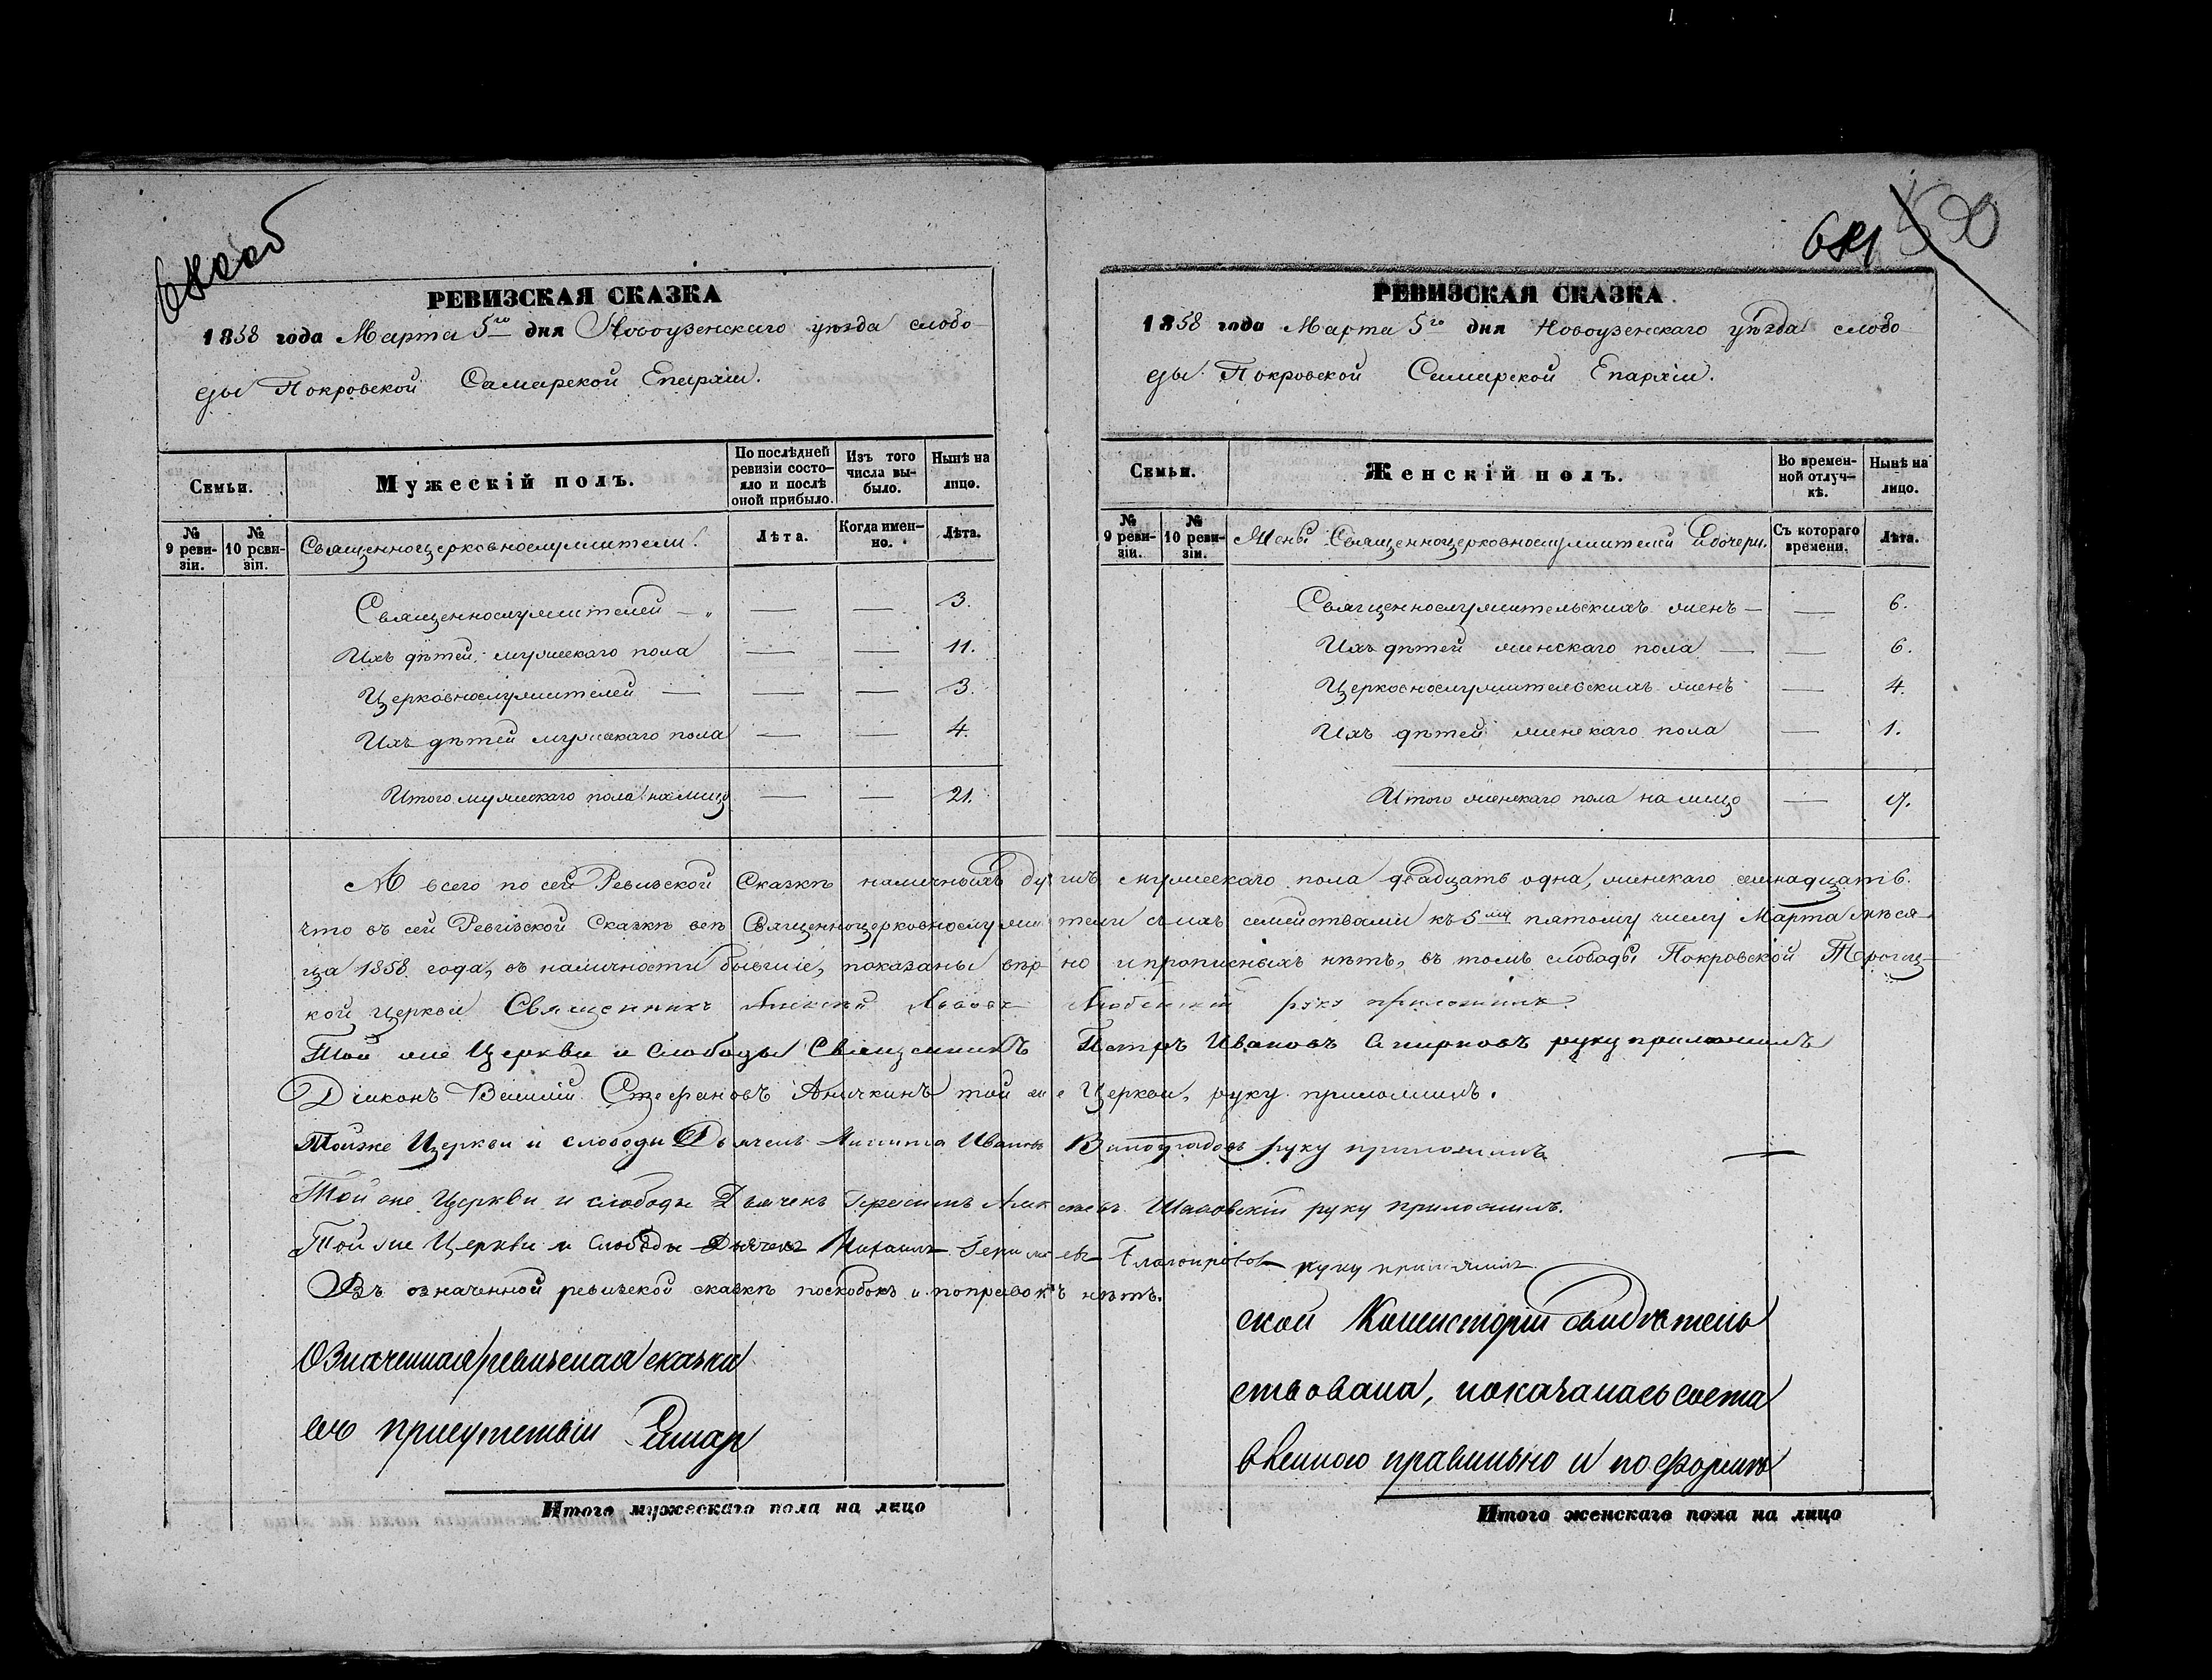 РЕВИЗСКАЯ СКАЗКА
1858 года Марта 5го дня Новоузенскаго уѣзда слобо-
ды Покровской Самарской Епархіи.
Семьи.
Мужескій полъ.
По послѣдней ревизіи состо-яло и послѣ оной прибыло.
Изъ того числа вы-было.
Нынѣ на лицо.
№ 9 реви-зіи.
№ 10 реви-зіи.
Священноцерковнослужители.
Лѣта.
Когда имен-но.
Лѣта.
Священнослужителей — — — 3.
Ихъ дѣтей мужескаго пола — — 11.
Церковнослужителей — — — 3.
Ихъ дѣтей мужескаго пола — — 4.
Итого мужескаго пола на лицо — — 21.
РЕВИЗСКАЯ СКАЗКА.
1858 года Марта 5го дня Новоузенскаго уѣзда слобо-
ды Покровской Самарской Епархіи.
Семьи.
Женскій полъ.
Во времен-ной отлуч-кѣ.
Нынѣ на лицо.
№ 9 реви-зіи.
№ 10 реви-зіи.
Жены Священноцерковнослужителей и дочери.
Съ котораго времени.
Лѣта.
Священнослужительскихъ женъ — — 6.
Ихъ дѣтей женскаго пола — — 6.
Церковнослужительскихъ женъ — 4.
Ихъ дѣтей женскаго пола — 1.
Итого женскаго пола на лицо — 17.
А всего по сей Ревизской Сказкѣ наличныхъ душъ мужескаго пола двадцать одна, женскаго семнадцать.
что въ сей Ревизской Сказкѣ всѣ Священноцерковнослужители съ ихъ семействами къ 5му пятому числу Марта мѣся-
ца 1858 года, въ наличности бывшіе, показаны вѣрно и прописныхъ нѣтъ, въ томъ слободы Покровской Троиц-
кой церкви Священникъ Алексѣй Львовъ руку приложилъ
Той же Церкви и Слободы Священникъ Петръ Ивановъ Смирновъ руку приложилъ
Діаконъ Василій Стефановъ Аничкинъ той же Церкви, руку приложилъ.
Тойже Церкви и слободы Дьячекъ Никита Ивановъ Виноградовъ руку приложилъ
Той же Церкви и слободы Дьячекъ Герасимъ Алексѣевъ Шаловскій руку приложилъ.
Той же Церкви и Слободы Дьячекъ Михаилъ руку приложилъ
Въ означенной ревизской сказкѣ поскобокъ и поправокъ нѣтъ.
Означенная ревизская сказка
въ присутствіи Самар
ской Консисторіи свидѣтель
ствована, показалась соста
вленною правильно и по формѣ
Итого мужескаго пола на лицо
Итого женскаго пола на лицо